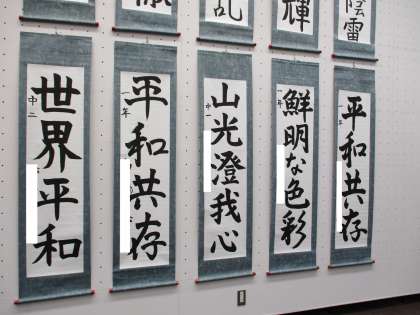 乱
輝
陰雷
世界平和
中二
平和共存
一年
山光澄我心
中一
鮮明な色彩
一年
平和共存